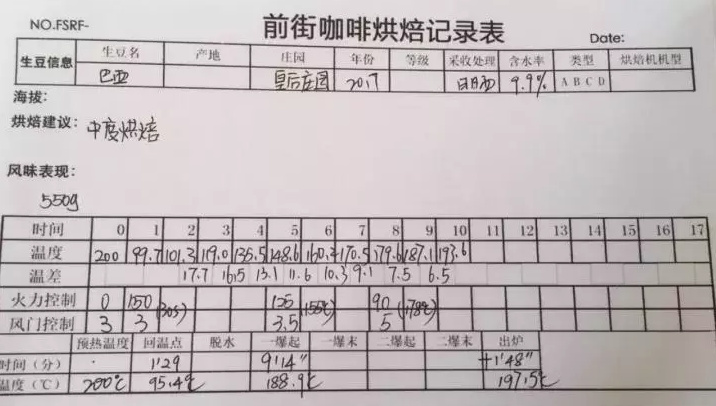 NO.FSRF- 前街咖啡烘焙记录表 Date:
生豆信息 生豆名 产地 庄园 年份 等级 采收处理 含水率 类型 烘焙机机型
巴西 皇后庄园 2017 日晒 9.9% A B C D
海拔:
烘焙建议: 中度烘焙
风味表现:
550g
时间 0 1 2 3 4 5 6 7 8 9 10 11 12 13 14 15 16 17
温度 200 99.7 101.3 119.0 135.5 148.6 160.2 170.5 179.6 187.1 193.6
温差 17.7 16.5 13.1 11.6 10.3 9.1 7.5 6.5
火力控制 0 150 (30s) 125 (155℃) 90 (178℃)
风门控制 3 3 3.5 5
预热温度 回温点 脱水 一爆起 一爆末 二爆起 二爆末 出炉
时间(分) 1'29 9'14" 11'48"
温度(℃) 200℃ 95.4℃ 188.9℃ 197.5℃